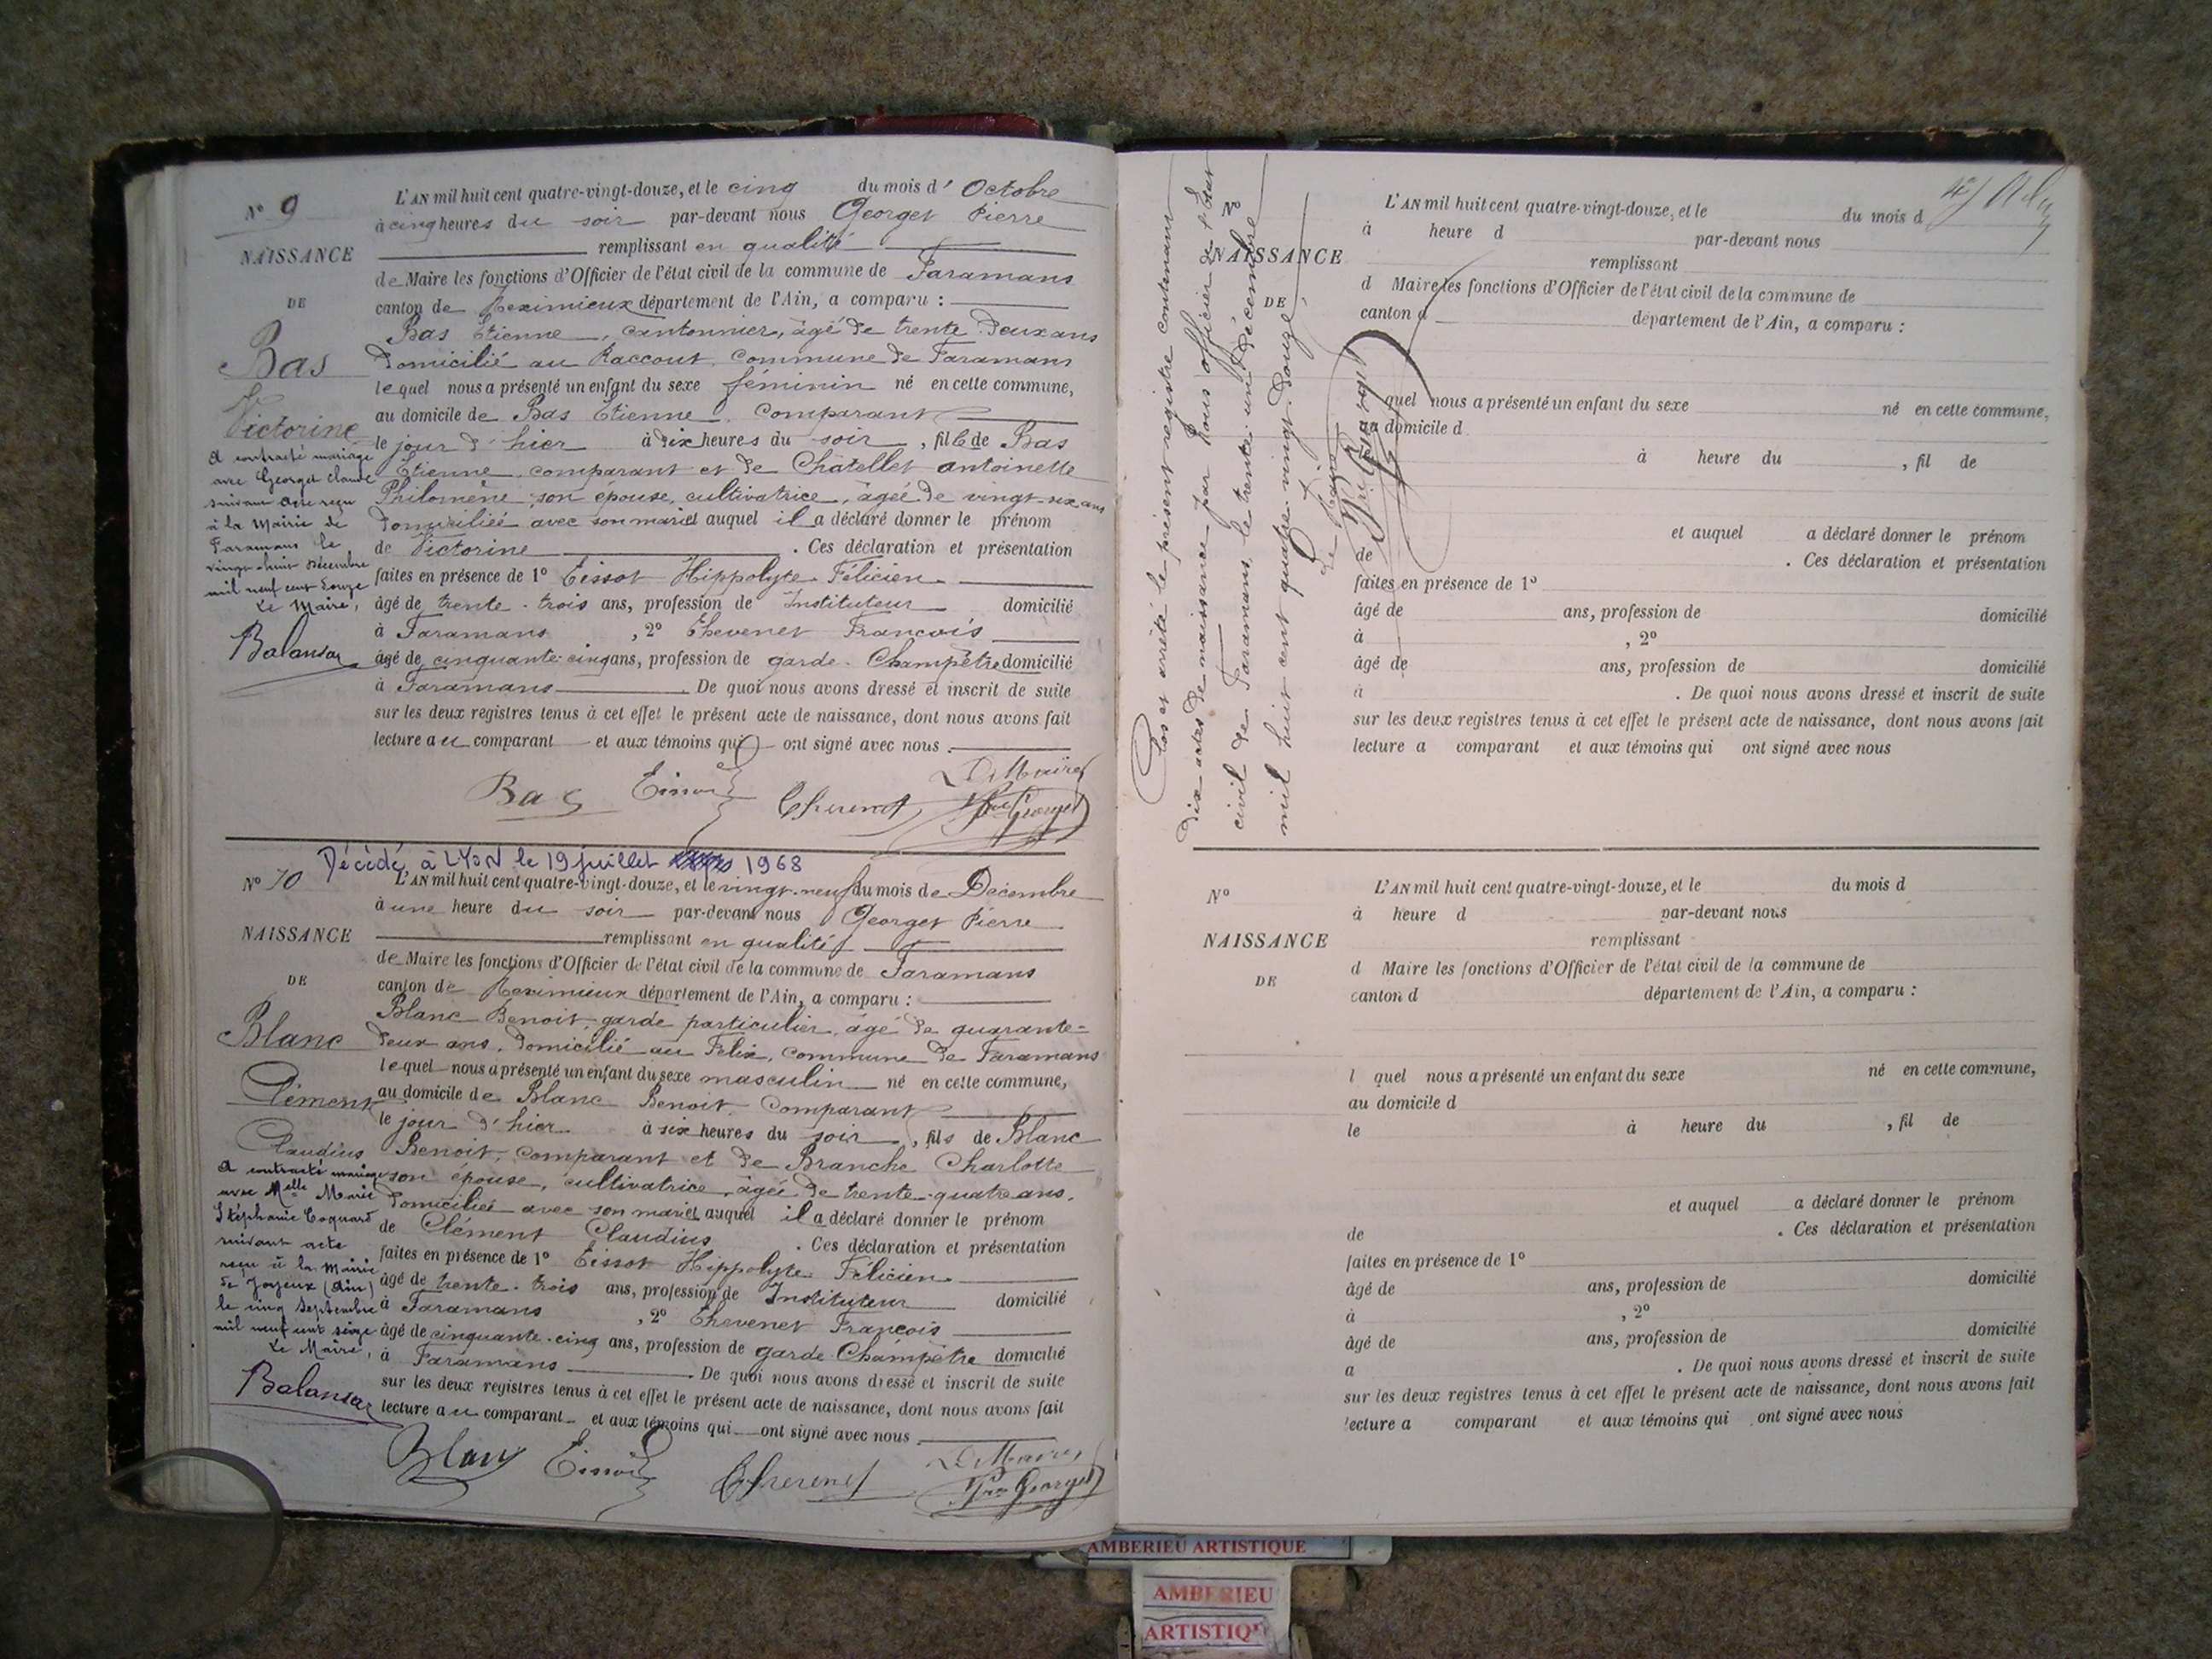 N° 9
NAISSANCE
DE
Bas
Victorine
A contracté mariage
avec Georget Claude
suivant acte reçu
à la Mairie de
Faramans le
vingt-huit Décembre
mil neuf cent douze
Le Maire,
L'AN mil huit cent quatre-vingt-douze, et le cinq du mois d' Octobre
à cinq heures du soir par-devant nous Georget Pierre
remplissant en qualité
de Maire les fonctions d'Officier de l'état civil de la commune de Faramans
canton de Meximieux département de l'Ain, a comparu :
Bas Etienne, cantonnier, âgé de trente deux ans
domicilié au Raccout, commune de Faramans
lequel nous a présenté un enfant du sexe féminin né en cette commune,
au domicile de Bas Etienne, comparant
le jour d'hier à dix heures du soir, fille de Bas
Etienne, comparant et de Châtellet antoinette
Philomène, son épouse, cultivatrice, âgée de vingt-six ans
domiciliée avec son mari et auquel il a déclaré donner le prénom
de Victorine. Ces déclaration et présentation
faites en présence de 1° Tissot Hippolyte Félicien
âgé de trente-trois ans, profession de Instituteur domicilié
à Faramans, 2° Thevenet François
âgé de cinquante-cinq ans, profession de garde-Champêtre domicilié
à Faramans. De quoi nous avons dressé et inscrit de suite
sur les deux registres tenus à cet effet le présent acte de naissance, dont nous avons fait
lecture au comparant et aux témoins qui ont signé avec nous.
Bas Tissot Thevenet Le Maire
Pre Georget
Décédé à LYON le 19 juillet 1968
N° 10
NAISSANCE
DE
Blanc
Clément
Claudius
A contracté mariage
avec Melle Marie
Stéphanie Coquard
suivant acte
reçu à la Mairie
de Joyeux (Ain)
le cinq Septembre
mil neuf cent seize
Le Maire,
L'AN mil huit cent quatre-vingt-douze, et le vingt-neuf du mois de Décembre
à une heure du soir par-devant nous Georget Pierre
remplissant en qualité
de Maire les fonctions d'Officier de l'état civil de la commune de Faramans
canton de Meximieux département de l'Ain, a comparu :
Blanc Benoit, garde particulier, âgé de quarante-
deux ans, domicilié au Félix, commune de Faramans
lequel nous a présenté un enfant du sexe masculin né en cette commune,
au domicile de Blanc Benoit, comparant
le jour d'hier à six heures du soir, fils de Blanc
Benoit, comparant et de Branche Charlotte
son épouse, cultivatrice, âgée de trente-quatre ans,
domiciliée avec son mari et auquel il a déclaré donner le prénom
de Clément Claudius. Ces déclaration et présentation
faites en présence de 1° Tissot Hippolyte Félicien
âgé de trente-trois ans, profession de Instituteur domicilié
à Faramans, 2° Thevenet François
âgé de cinquante-cinq ans, profession de garde-Champêtre domicilié
à Faramans. De quoi nous avons dressé et inscrit de suite
sur les deux registres tenus à cet effet le présent acte de naissance, dont nous avons fait
lecture au comparant et aux témoins qui ont signé avec nous.
Blanc Tissot Thevenet Le Maire,
Pre Georget
Clos et arrêté le présent registre contenant
dix actes de naissance par nous officier de l'état
civil de Faramans, le trente-un Décembre
mil huit cent quatre-vingt-douze.
Le Maire
Pre Georget
NAISSANCE
DE
L'AN mil huit cent quatre-vingt-douze, et le du mois d
à heure d par-devant nous
remplissant
d Maire les fonctions d'Officier de l'état civil de la commune de
canton d département de l'Ain, a comparu :
quel nous a présenté un enfant du sexe né en cette commune,
au domicile d
à heure du , fil de
et auquel a déclaré donner le prénom
de . Ces déclaration et présentation
faites en présence de 1°
âgé de ans, profession de domicilié
à , 2°
âgé de ans, profession de domicilié
à . De quoi nous avons dressé et inscrit de suite
sur les deux registres tenus à cet effet le présent acte de naissance, dont nous avons fait
lecture a comparant et aux témoins qui ont signé avec nous
N°
NAISSANCE
DE
L'AN mil huit cent quatre-vingt-douze, et le du mois d
à heure d par-devant nous
remplissant
d Maire les fonctions d'Officier de l'état civil de la commune de
canton d département de l'Ain, a comparu :
l quel nous a présenté un enfant du sexe né en cette commune,
au domicile d
le à heure du , fil de
et auquel a déclaré donner le prénom
de . Ces déclaration et présentation
faites en présence de 1°
âgé de ans, profession de domicilié
à , 2°
âgé de ans, profession de domicilié
a . De quoi nous avons dressé et inscrit de suite
sur les deux registres tenus à cet effet le présent acte de naissance, dont nous avons fait
lecture a comparant et aux témoins qui ont signé avec nous
AMBERIEU ARTISTIQUE
AMBERIEU
ARTISTIQ